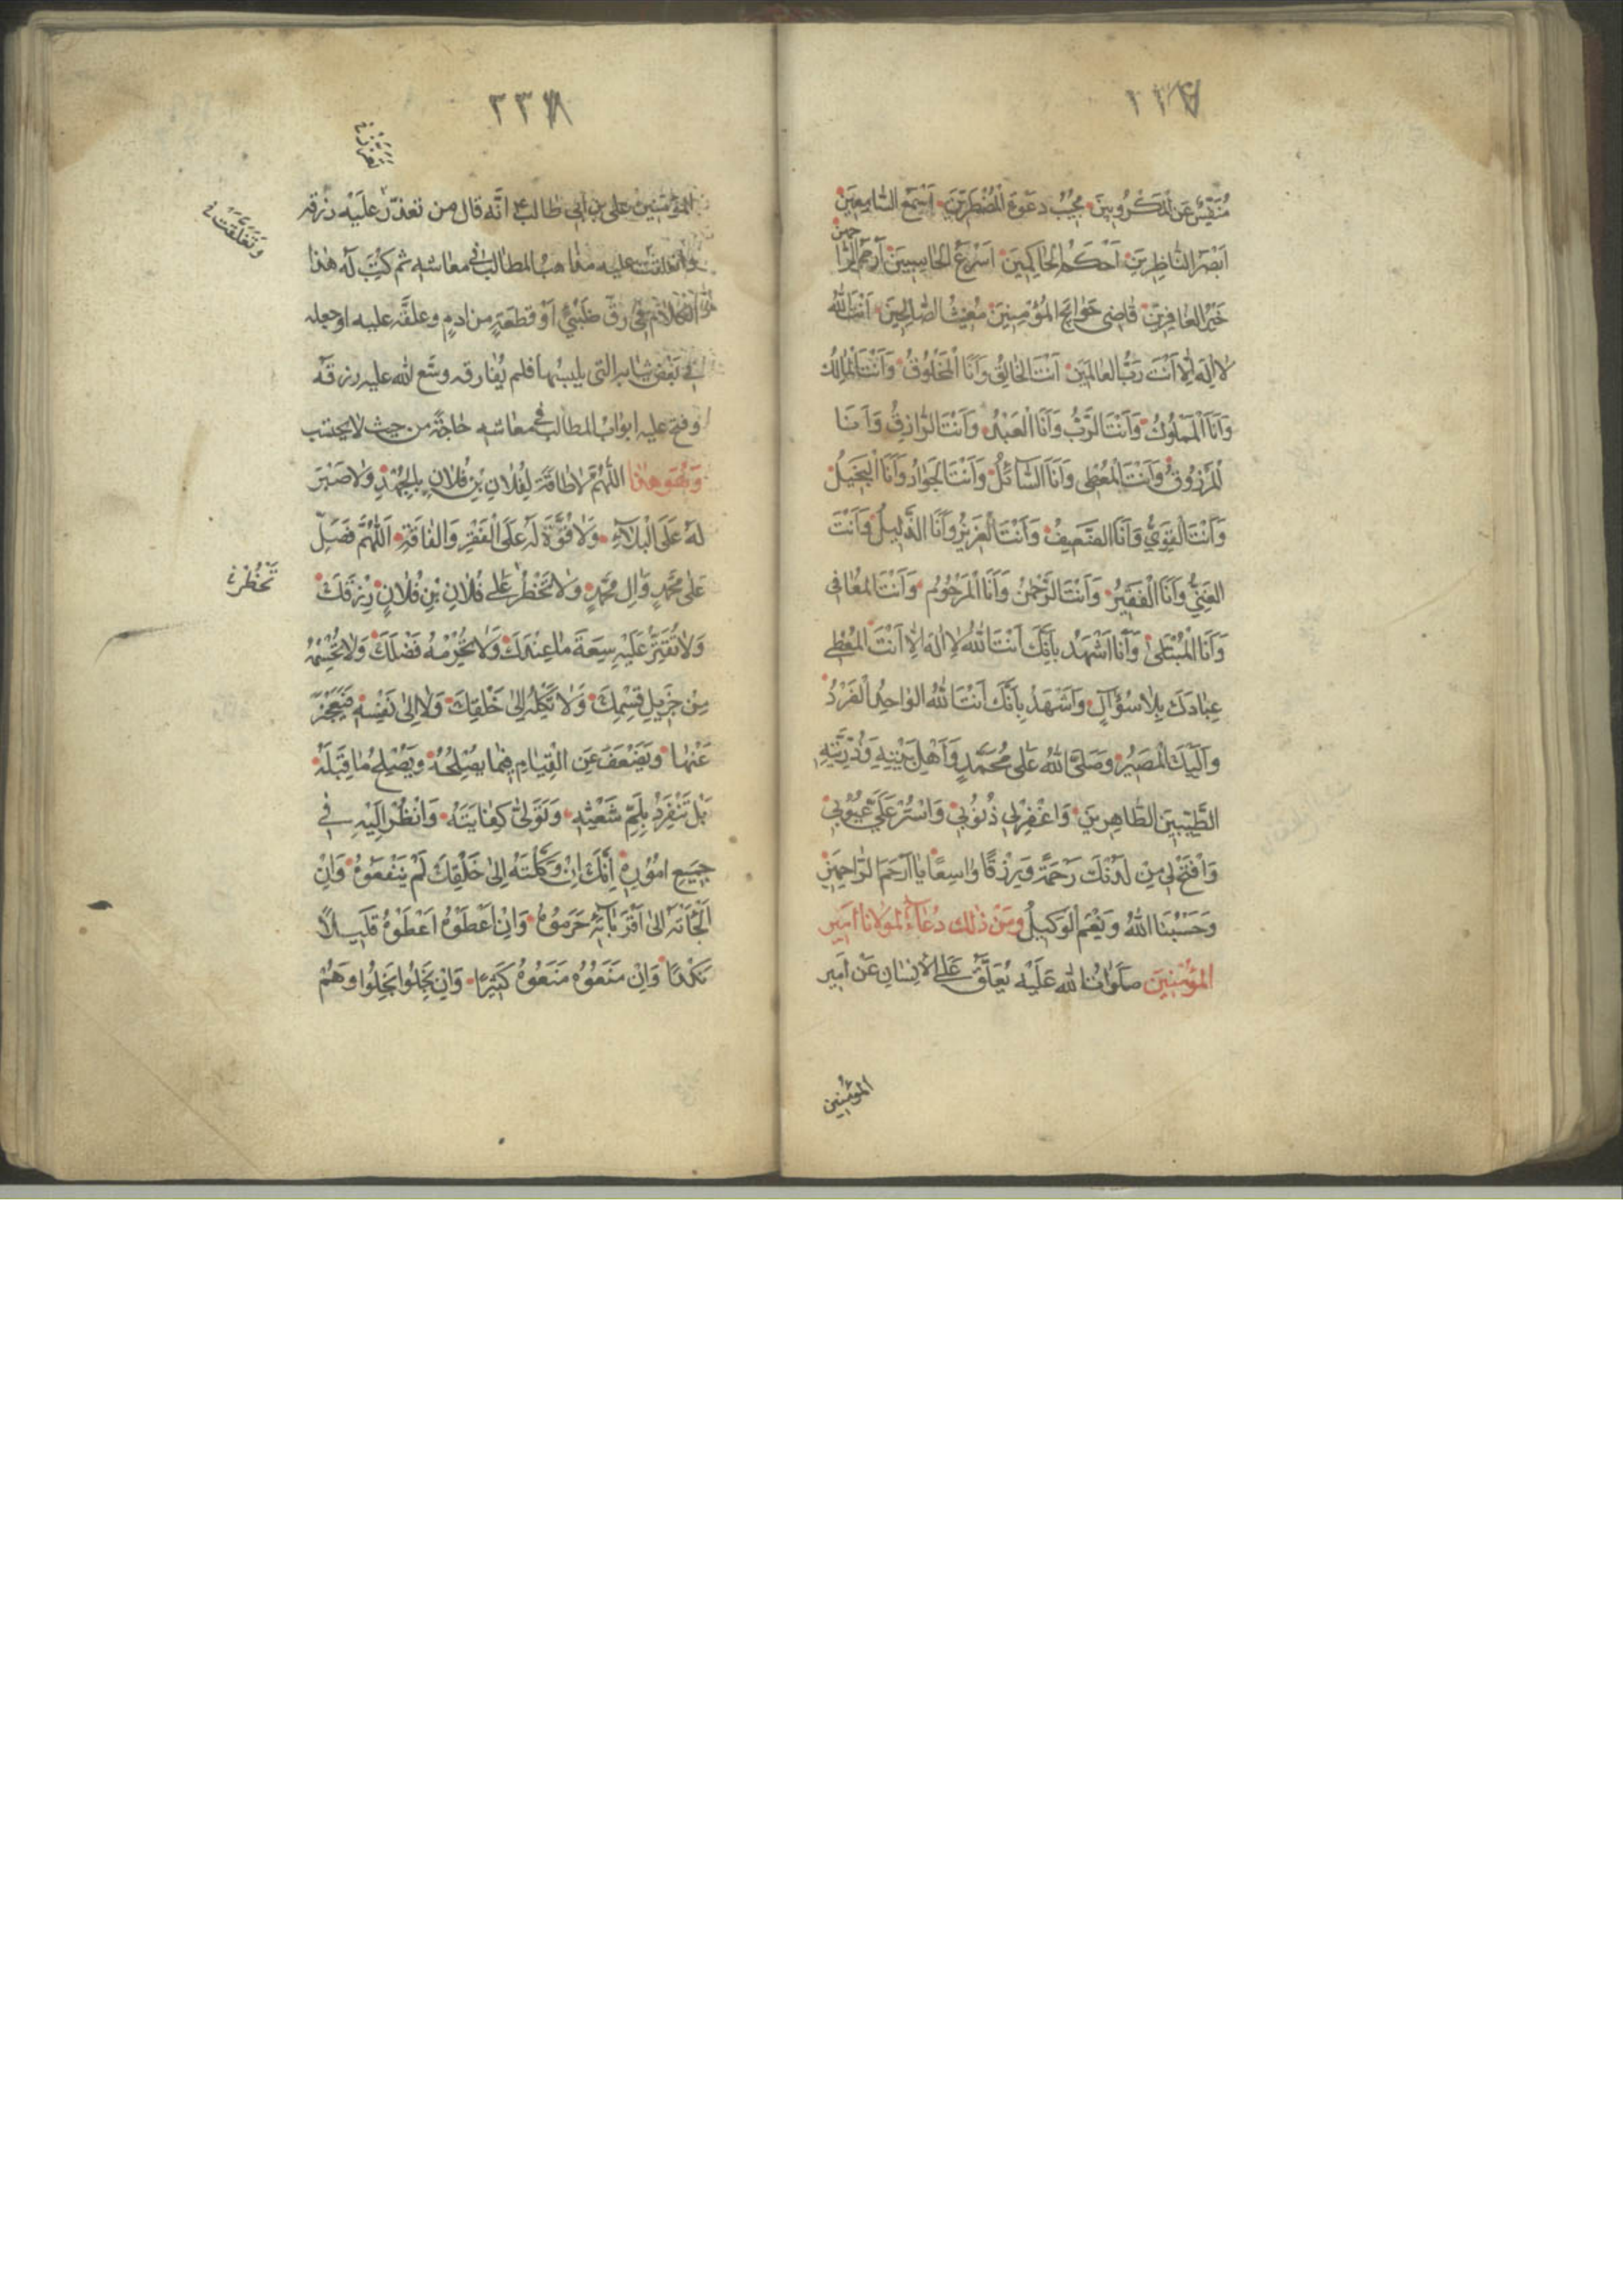 مُنَفِّسُ عَنِ الْمَكْرُوبِينَ مُجِيبُ دَعْوَةِ الْمُضْطَرِّينَ اَسْمَعَ السَّامِعِينَ
اَبْصَرَ النَّاظِرِينَ اَحْكَمَ الْحَاكِمِينَ اَسْرَعَ الْحَاسِبِينَ اَرْحَمَ الرَّا
حِمِينَ
خَيْرَ الْغَافِرِينَ قَاضِىَ حَوَائِجِ الْمُؤْمِنِينَ مُغِيثَ الصَّالِحِينَ اَنْتَ اللهُ
لَا اِلٰهَ اِلَّا اَنْتَ رَبُّ الْعَالَمِينَ اَنْتَ الْخَالِقُ وَاَنَا الْمَخْلُوقُ وَاَنْتَ الْمَالِكُ
وَاَنَا الْمَمْلُوكُ وَاَنْتَ الرَّبُّ وَاَنَا الْعَبْدُ وَاَنْتَ الرَّازِقُ وَاَنَا
الْمَرْزُوقُ وَاَنْتَ الْمُعْطِى وَاَنَا السَّائِلُ وَاَنْتَ الْجَوَادُ وَاَنَا الْبَخِيلُ
وَاَنْتَ الْقَوِىُّ وَاَنَا الضَّعِيفُ وَاَنْتَ الْعَزِيزُ وَاَنَا الذَّلِيلُ وَاَنْتَ
الْغَنِىُّ وَاَنَا الْفَقِيرُ وَاَنْتَ الرَّحْمٰنُ وَاَنَا الْمَرْحُومُ وَاَنْتَ الْمُعَافِى
وَاَنَا الْمُبْتَلٰى وَاَنَا اَشْهَدُ بِاَنَّكَ اَنْتَ اللهُ لَا اِلٰهَ اِلَّا اَنْتَ الْمُعْطِى
عِبَادَكَ بِلَا سُؤَالٍ وَاَشْهَدُ بِاَنَّكَ اَنْتَ اللهُ الْوَاحِدُ الْفَرْدُ
وَاِلَيْكَ الْمَصِيرُ وَصَلَّى اللهُ عَلٰى مُحَمَّدٍ وَاَهْلِ بَيْتِهِ وَذُرِّيَّتِهِ
الطَّيِّبِينَ الطَّاهِرِينَ وَاغْفِرْ لِى ذُنُوبِى وَاسْتُرْ عَلَىَّ عُيُوبِى
وَافْتَحْ لِى مِنْ لَدُنْكَ رَحْمَةً وَرِزْقًا وَاسِعًا يَا اَرْحَمَ الرَّاحِمِينَ
وَحَسْبُنَا اللهُ وَنِعْمَ الْوَكِيلُ وَمِنْ ذٰلِكَ دُعَاءٌ لِمَوْلَانَا اَمِيرِ
الْمُؤْمِنِينَ صَلَوَاتُ اللهِ عَلَيْهِ يُعَلَّقُ عَلَى الْاِنْسَانِ عَنْ اَمِيرِ
المؤمنين
٢٣٨
المؤمنين على بن ابى طالب ع انّه قال من تعذّر عليه رزقه
عليه مذاهب المطالب فى معاشه ثم كتب له هذا
الكلام فى رقّ ظبىٍ او قطعةٍ من ادمٍ وعلّقه عليه او جعله
فى بعض ثيابه التى يلبسها فلم يفارقه وسّع الله عليه رزقه
وفتح عليه ابواب المطالب فى معاشه من حيث لا يحتسب
وَهُوَ هٰذَا اَللّٰهُمَّ لَا طَاقَةَ لِفُلَانِ بْنِ فُلَانٍ بِالْجُهْدِ وَلَا صَبْرَ
لَهُ عَلَى الْبَلَاءِ وَلَا قُوَّةَ لَهُ عَلَى الْفَقْرِ وَالْفَاقَةِ اَللّٰهُمَّ فَصَلِّ
عَلٰى مُحَمَّدٍ وَاٰلِ مُحَمَّدٍ وَلَا تَحْظُرْ عَلٰى فُلَانِ بْنِ فُلَانٍ رِزْقَكَ
تَحْظُرْ
وَلَا تُقَتِّرْ عَلَيْهِ سِعَةَ مَا عِنْدَكَ وَلَا تَحْرِمْهُ فَضْلَكَ وَلَا تَحْسِمْهُ
مِنْ جَزِيلِ قِسْمِكَ وَلَا تَكِلْهُ اِلٰى خَلْقِكَ وَلَا اِلٰى نَفْسِهِ فَيَعْجِزَ
عَنْهَا وَيَضْعُفَ عَنِ الْقِيَامِ فِيمَا يُصْلِحُهُ وَيُصْلِحُ مَا قِبَلَهُ
بَلْ تَنْفَرِدُ بِلَمِّ شَعْثِهِ وَتَوَلّٰى كِفَايَتَهُ وَانْظُرْ اِلَيْهِ فِى
جَمِيعِ اُمُورِهِ اِنَّكَ اِنْ وَكَلْتَهُ اِلٰى خَلْقِكَ لَمْ يَنْفَعُوهُ وَاِنْ
اَلْجَأْتَهُ اِلٰى اَقْرِبَائِهِ حَرَمُوهُ وَاِنْ اَعْطَوْهُ اَعْطَوْهُ قَلِيلًا
نَكِدًا وَاِنْ مَنَعُوهُ مَنَعُوهُ كَثِيرًا وَاِنْ بَخِلُوا بَخِلُوا وَهُمْ